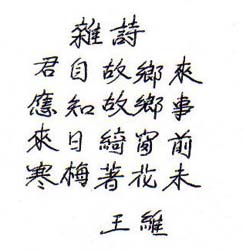 雜詩
君自故鄉來
應知故鄉事
來日綺窗前
寒梅著花未
王維